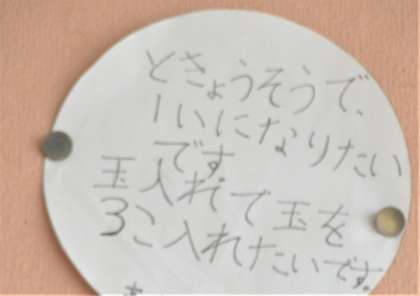 ときょうそうで、
1いになりたい
です
玉入れで玉を
3こ入れたいです。